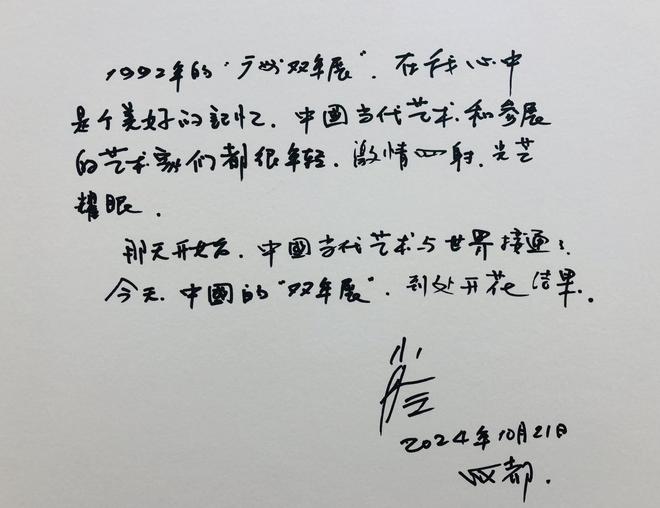 1992年的“广州双年展”，在我心中
是个美好的記忆，中國当代艺术和参展
的艺术家们都很年轻，激情四射，光芒
耀眼。
那天开始后，中國当代艺术与世界接通了，
今天，中國的“双年展”，到处开花结果。
2024年10月21日
成都。